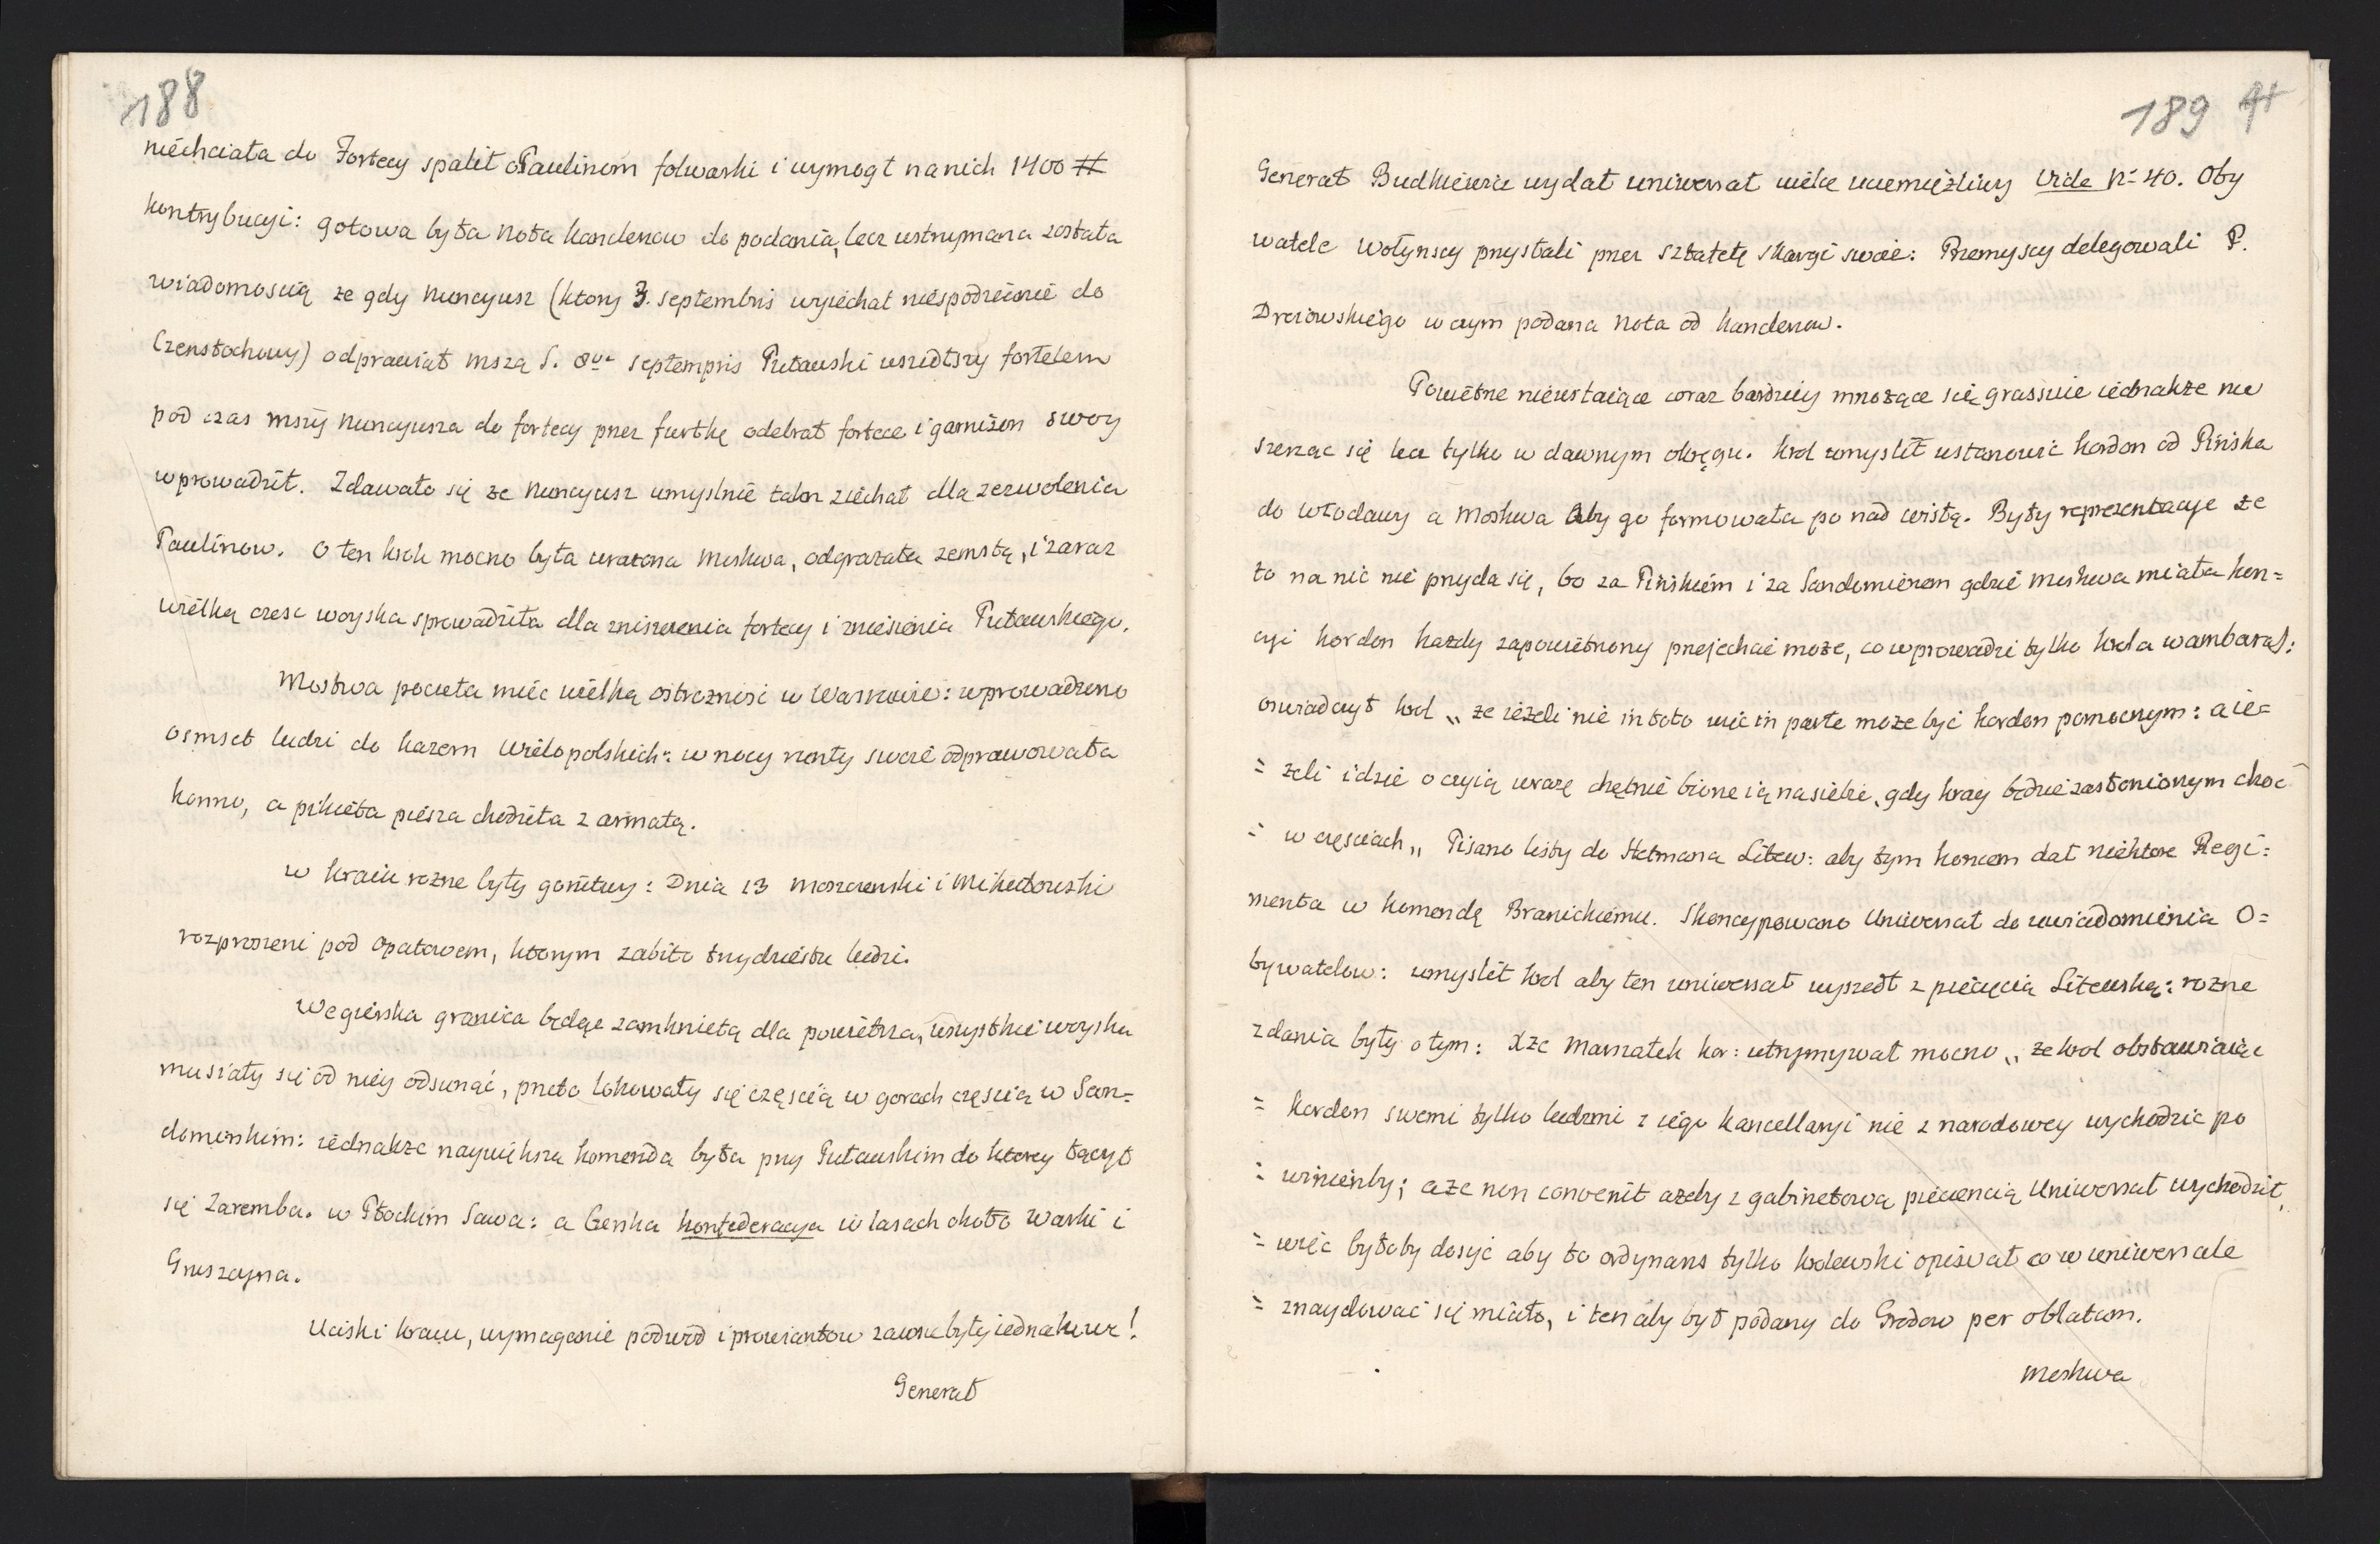 188
niechciała do Fortecy spalił OPaulinom folwarki i wymogł na nich 1400 #
kontrybucyi: gotowa była Nota kanclerzow do podania, lecz ustrzymana została
wiadomoscią ze gdy Nuncyusz (ktory 3. septembris wyiechał niespodzianie do
Czenstochowy) odprawiał mszą S. 8va septempris Putawski wszedtszy fortelem
pod czas mszy Nuncyusza do fortecy przez furtkę odebrał fortece i garnizon swoy
wprowadził. Zdawało się ze Nuncyusz umyslnie tam ziechał dla zezwolenia
Paulinow. O ten krok mocno była urazona Moskwa, odgrazała zemstą, i zaraz
wielką czesc woyska sprowadziła dla zniszczenia fortecy i zniesienia Putawskiego.
Moskwa poczeła miec wielką ostroznosc w Warszawie: wprowadzono
osmset ludzi do kazern Wielopolskich: w nocy ronty swoie odprawowała
konno, a pikieta piesza chodziła z armatą.
w kraiu rozne były gonitwy: Dnia 13 Moszczenski i Mikutowski
rozproszeni pod Opatowem, ktorym zabito trzydziestu ludzi.
Węgierska granica będąc zamknietą dla powietrza, wszystkie woyska
musiały się od niey odsunąć, przeto lokowały się częscią w gorach częscią w San=
domirskim: iednakze naywiększa komenda była przy Putawskim do ktorey łączył
się Zaremba. w Płockim Sawa: a Czerska konfederacya w lasach około Warki i
Gruszczyna.
Uciski kraiu, wymaganie podwod i prowiantow zawsze były iednakowe!
Generał
189 41
Generał Budkiewicz wydał uniwersał wielce uciemięzliwy Vide No 40. Oby
watele Wołynscy przysłali przez sztafetę skargi swoie: Przemyscy delegowali P.
Drozowskiego w czym podana Nota od Kanclerzow.
Powietrze nieustaiące coraz bardziey mnożące się grassuie iednakze nie
szerząc się lecz tylko w dawnym okręgu. Krol umyslił ustanowic kordon od Pińska
do Włodawy a Moskwa aby go formowała po nad wisłą. Były reprezentacye że
to na nic nie przyda się, bo za Pińskiem i za Sandomirem gdzie Moskwa miała kon=
czyc kordon kazdy zapowietrzony przejechac może, co wprowadzi tylko krola w ambaras:
oswiadczył krol „ ze iezeli nie in toto więc in parte moze być kordon pomocnym: a ie=
= zeli idzie o czyią urazę chętnie biorę ią na siebie, gdy kray będzie zasłonionym choc
= w częsciach „ Pisano listy do Hetmana Litew: aby tym koncem dał niektore Regi=
menta w komendę Branickiemu. Skoncypowano Uniwersał do uwiadomienia O=
bywatelow: umyslił krol aby ten uniwersał wyszedł z pieczęcią Litewską: rozne
zdania były o tym: Xze Marszałek kor: utrzymywał mocno „ ze krol obstawiaiąc
= kordon swemi tylko ludzmi z iego kancellaryi nie z narodowey wychodzic po
= winienby; aze non convenit azeby z gabinetową pieczencią Uniwersał wychodził,
= więc byłoby dosyc aby to ordynans tylko krolewski opisał co w uniwersale
= znaydowac się miało, i ten aby był podany do Grodow per oblatam.
Moskwa